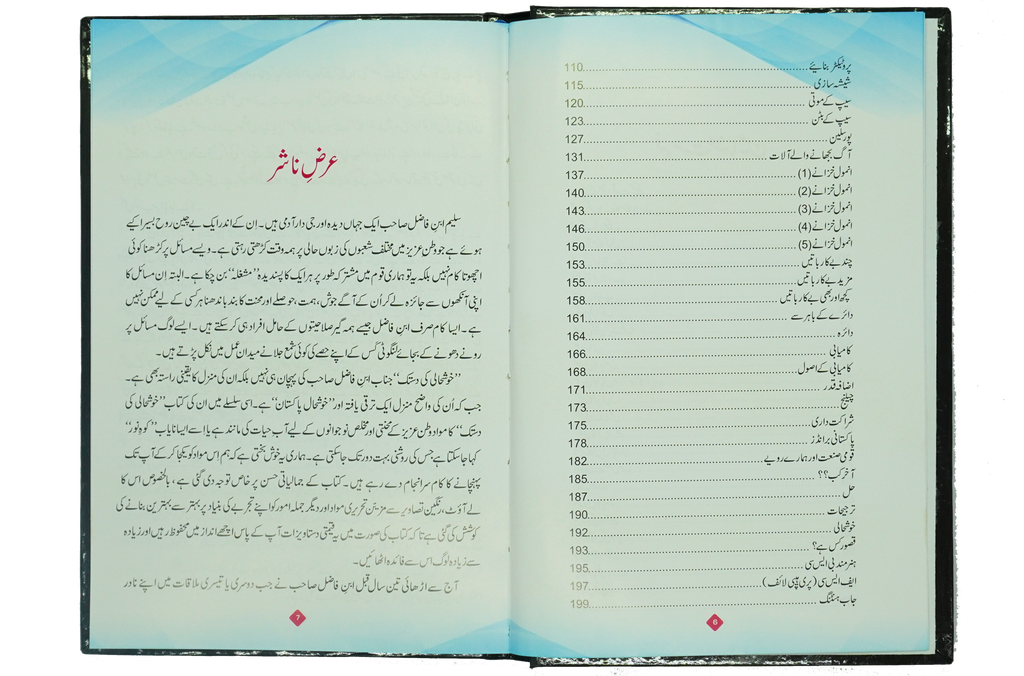 پروٹیکٹر بنائیے 110
شیشہ سازی 115
سیپ کے موتی 120
سیپ کے بٹن 123
پورسلین 127
آگ بجھانے والے آلات 131
انمول خزانے (1) 137
انمول خزانے (2) 140
انمول خزانے (3) 143
انمول خزانے (4) 146
انمول خزانے (5) 150
چند بے کار باتیں 153
مزید بے کار باتیں 155
کچھ اور بھی بے کار باتیں 158
دائرے کے باہر سے 161
دائرہ 164
کامیابی 166
کامیابی کے اصول 168
اضافہ قدر 171
چیلنج 173
شراکت داری 175
پاکستانی برانڈز 178
قومی صنعت اور ہمارے رویے 182
آخر کب؟؟ 185
حل 187
ترجیحات 190
خوشحالی 192
قصور کس ہے؟ 193
ہنر مند بی ایس سی 195
ایف ایس سی (پری ہیپی لائف) 197
جاب ہنٹنگ 199
6
عرضِ ناشر
سلیم ابنِ فاضل صاحب ایک جہاں دیدہ اور جی دار آدمی ہیں۔ اِن کے اندر ایک بے چین روح بسیرا کیے
ہوئے ہے جو وطن عزیز میں مختلف شعبوں کی زبوں حالی پر ہمہ وقت کڑھتی رہتی ہے۔ ویسے مسائل پر کڑھنا کوئی
اچھوتا کام نہیں بلکہ یہ تو ہماری قوم میں مشترکہ طور پر ہر ایک کا پسندیدہ ”مشغلہ“ بن چکا ہے۔ البتہ اِن مسائل کا
اپنی آنکھوں سے جائزہ لے کر اُن کے آگے جوش، ہمت، حوصلے اور محنت کا بند باندھنا ہر کسی کے لیے ممکن نہیں
ہے۔ ایسا کام صرف ابنِ فاضل جیسے ہمہ گیر صلاحیتوں کے حامل افراد ہی کر سکتے ہیں۔ ایسے لوگ مسائل پر
رونے دھونے کے بجائے لنگوٹی کس کے اپنے حصے کی کوئی شمع جلانے میدان عمل میں نکل پڑتے ہیں۔
”خوشحالی کی دستک“ جناب ابنِ فاضل صاحب کی پہچان ہی نہیں بلکہ ان کی منزل کا یقینی راستہ بھی ہے۔
جب کہ اُن کی واضح منزل ایک ترقی یافتہ اور ”خوشحال پاکستان“ ہے۔ اسی سلسلے میں ان کی کتاب ”خوشحالی کی
دستک“ کا مواد وطن عزیز کے محنتی اور مخلص نوجوانوں کے لیے آب حیات کی مانند ہے یا اسے ایسا نایاب ”کوہِ نور“
کہا جاسکتا ہے جس کی روشنی بہت دور تک جاسکتی ہے۔ ہماری یہ خوش بختی ہے کہ ہم اس مواد کو یکجا کر کے آپ تک
پہنچانے کا کام سرانجام دے رہے ہیں۔ کتاب کے جمالیاتی حسن پر خاص توجہ دی گئی ہے، بالخصوص اس کا
لے آؤٹ، رنگین تصاویر سے مزین تحریری مواد اور دیگر جملہ امور کو اپنے تجربے کی بنیاد پر بہتر سے بہترین بنانے کی
کوشش کی گئی ہے تاکہ کتاب کی صورت میں یہ قیمتی دستاویزات آپ کے پاس اچھے انداز میں محفوظ رہیں اور زیادہ
سے زیادہ لوگ اس سے فائدہ اٹھائیں۔
آج سے اڑھائی تین سال قبل ابنِ فاضل صاحب نے جب دوسری یا تیسری ملاقات میں اپنے نادر
7